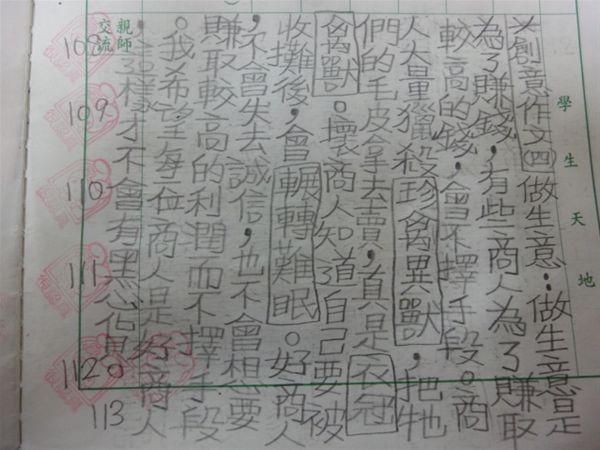 學生天地
※創意作文(四)做生意:做生意是
為了賺錢,有些商人為了賺取
較高的錢,會不擇手段。商
人大量獵殺珍禽異獸,把牠
們的毛皮拿去賣,真是衣冠
禽獸。壞商人知道自己要被
收攤後,會輾轉難眠。好商人
,不會失去誠信,也不會想要
賺取較高的利潤而不擇手段
。我希望每位商人是好商人
,這樣才不會有黑心
親師交流
108
109
110
111
112
113